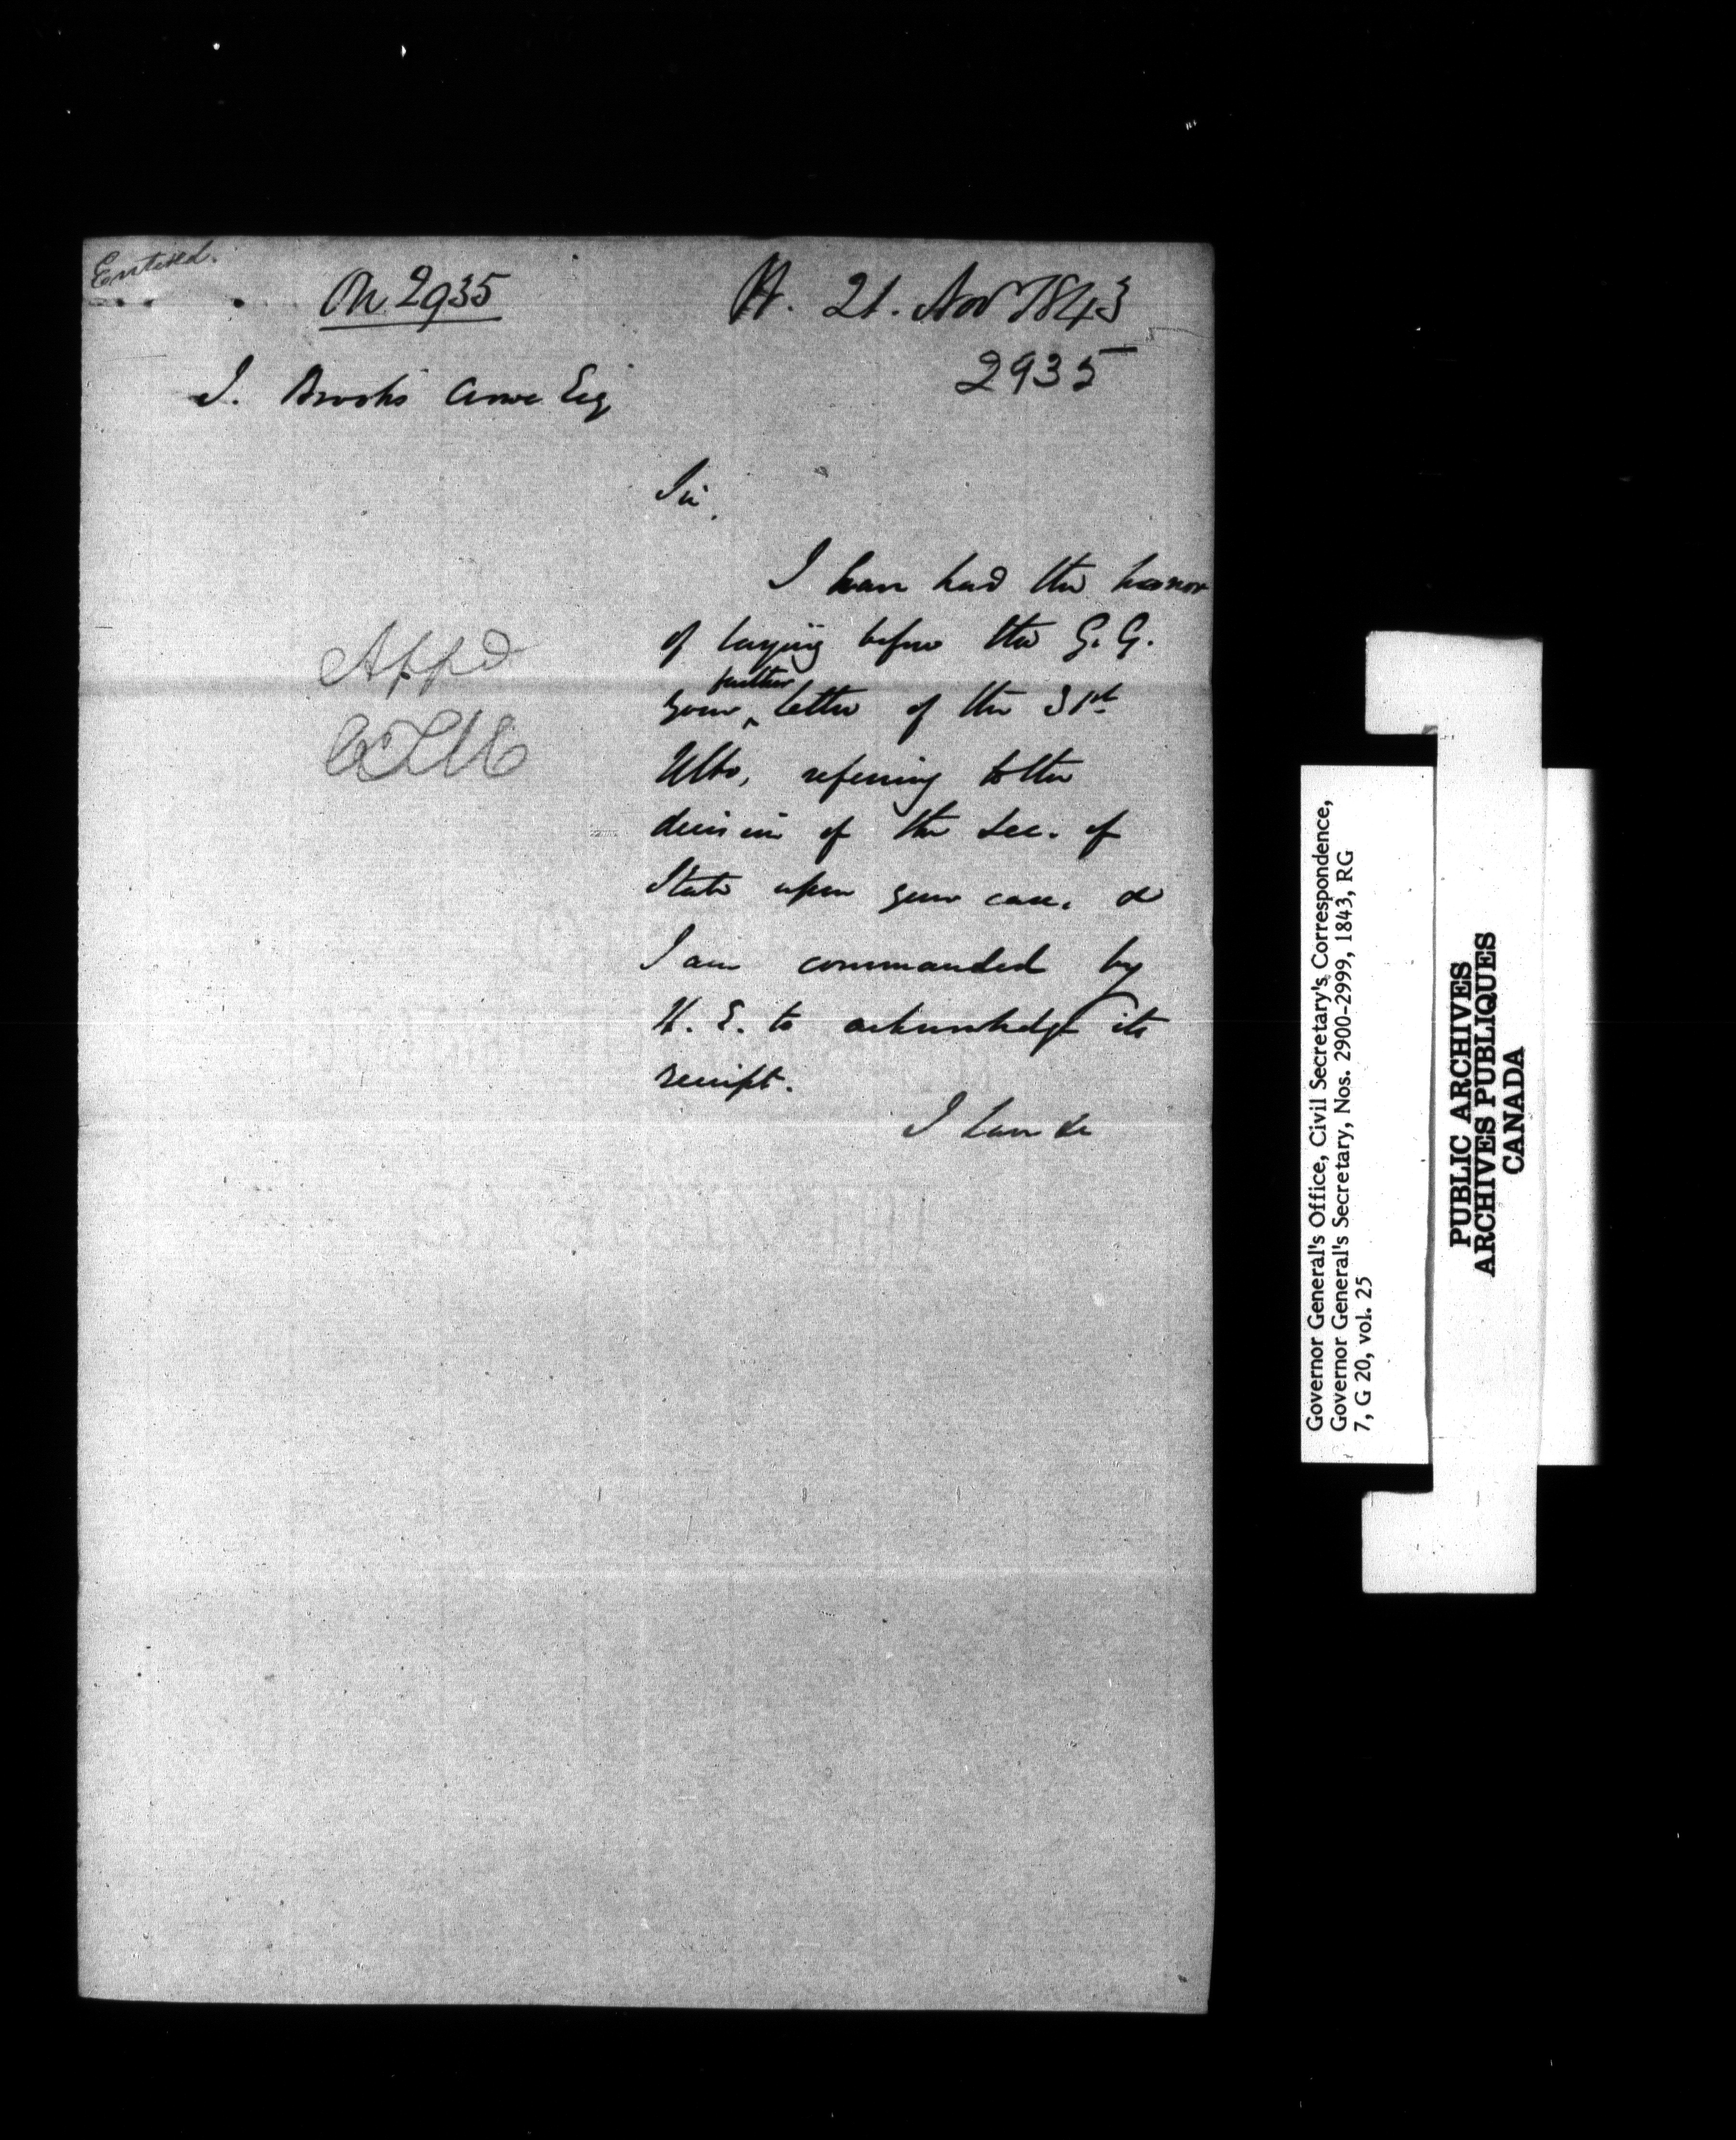 Entered.
On 2935
K. 21. Nov 1843
2935
J. Brooks Crowe Esq
Sir,
I have had the honor
of laying before the G. G.
your further letter of the 31st
Ulto, referring to the
decision of the Sec. of
State upon your case, &
I am commanded by
H. E. to acknowledge its
receipt.
I have &c
Appd
CTM
Governor General's Office, Civil Secretary's Correspondence,
Governor General's Secretary, Nos. 2900-2999, 1843, RG
7, G 20, vol. 25
PUBLIC ARCHIVES
ARCHIVES PUBLIQUES
CANADA